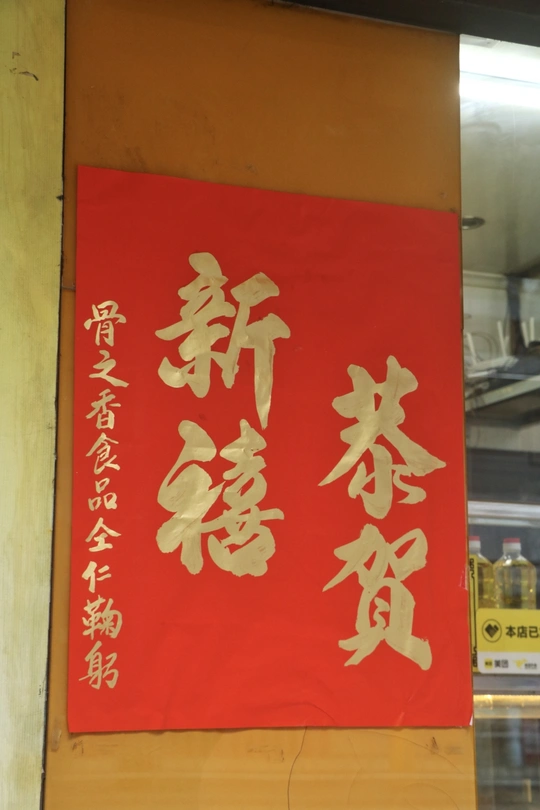 恭賀
新禧
骨之香食品仝仁鞠躬
本店已
美团